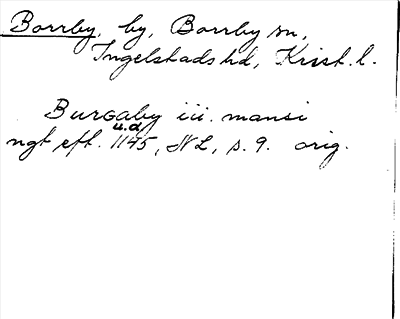 Borrby, by, Borrby sn,
Ingelstads hd, Krist. l.
Burgaby iii. mansi
u.å.
ngt eft. 1145, NL, s. 9. orig.